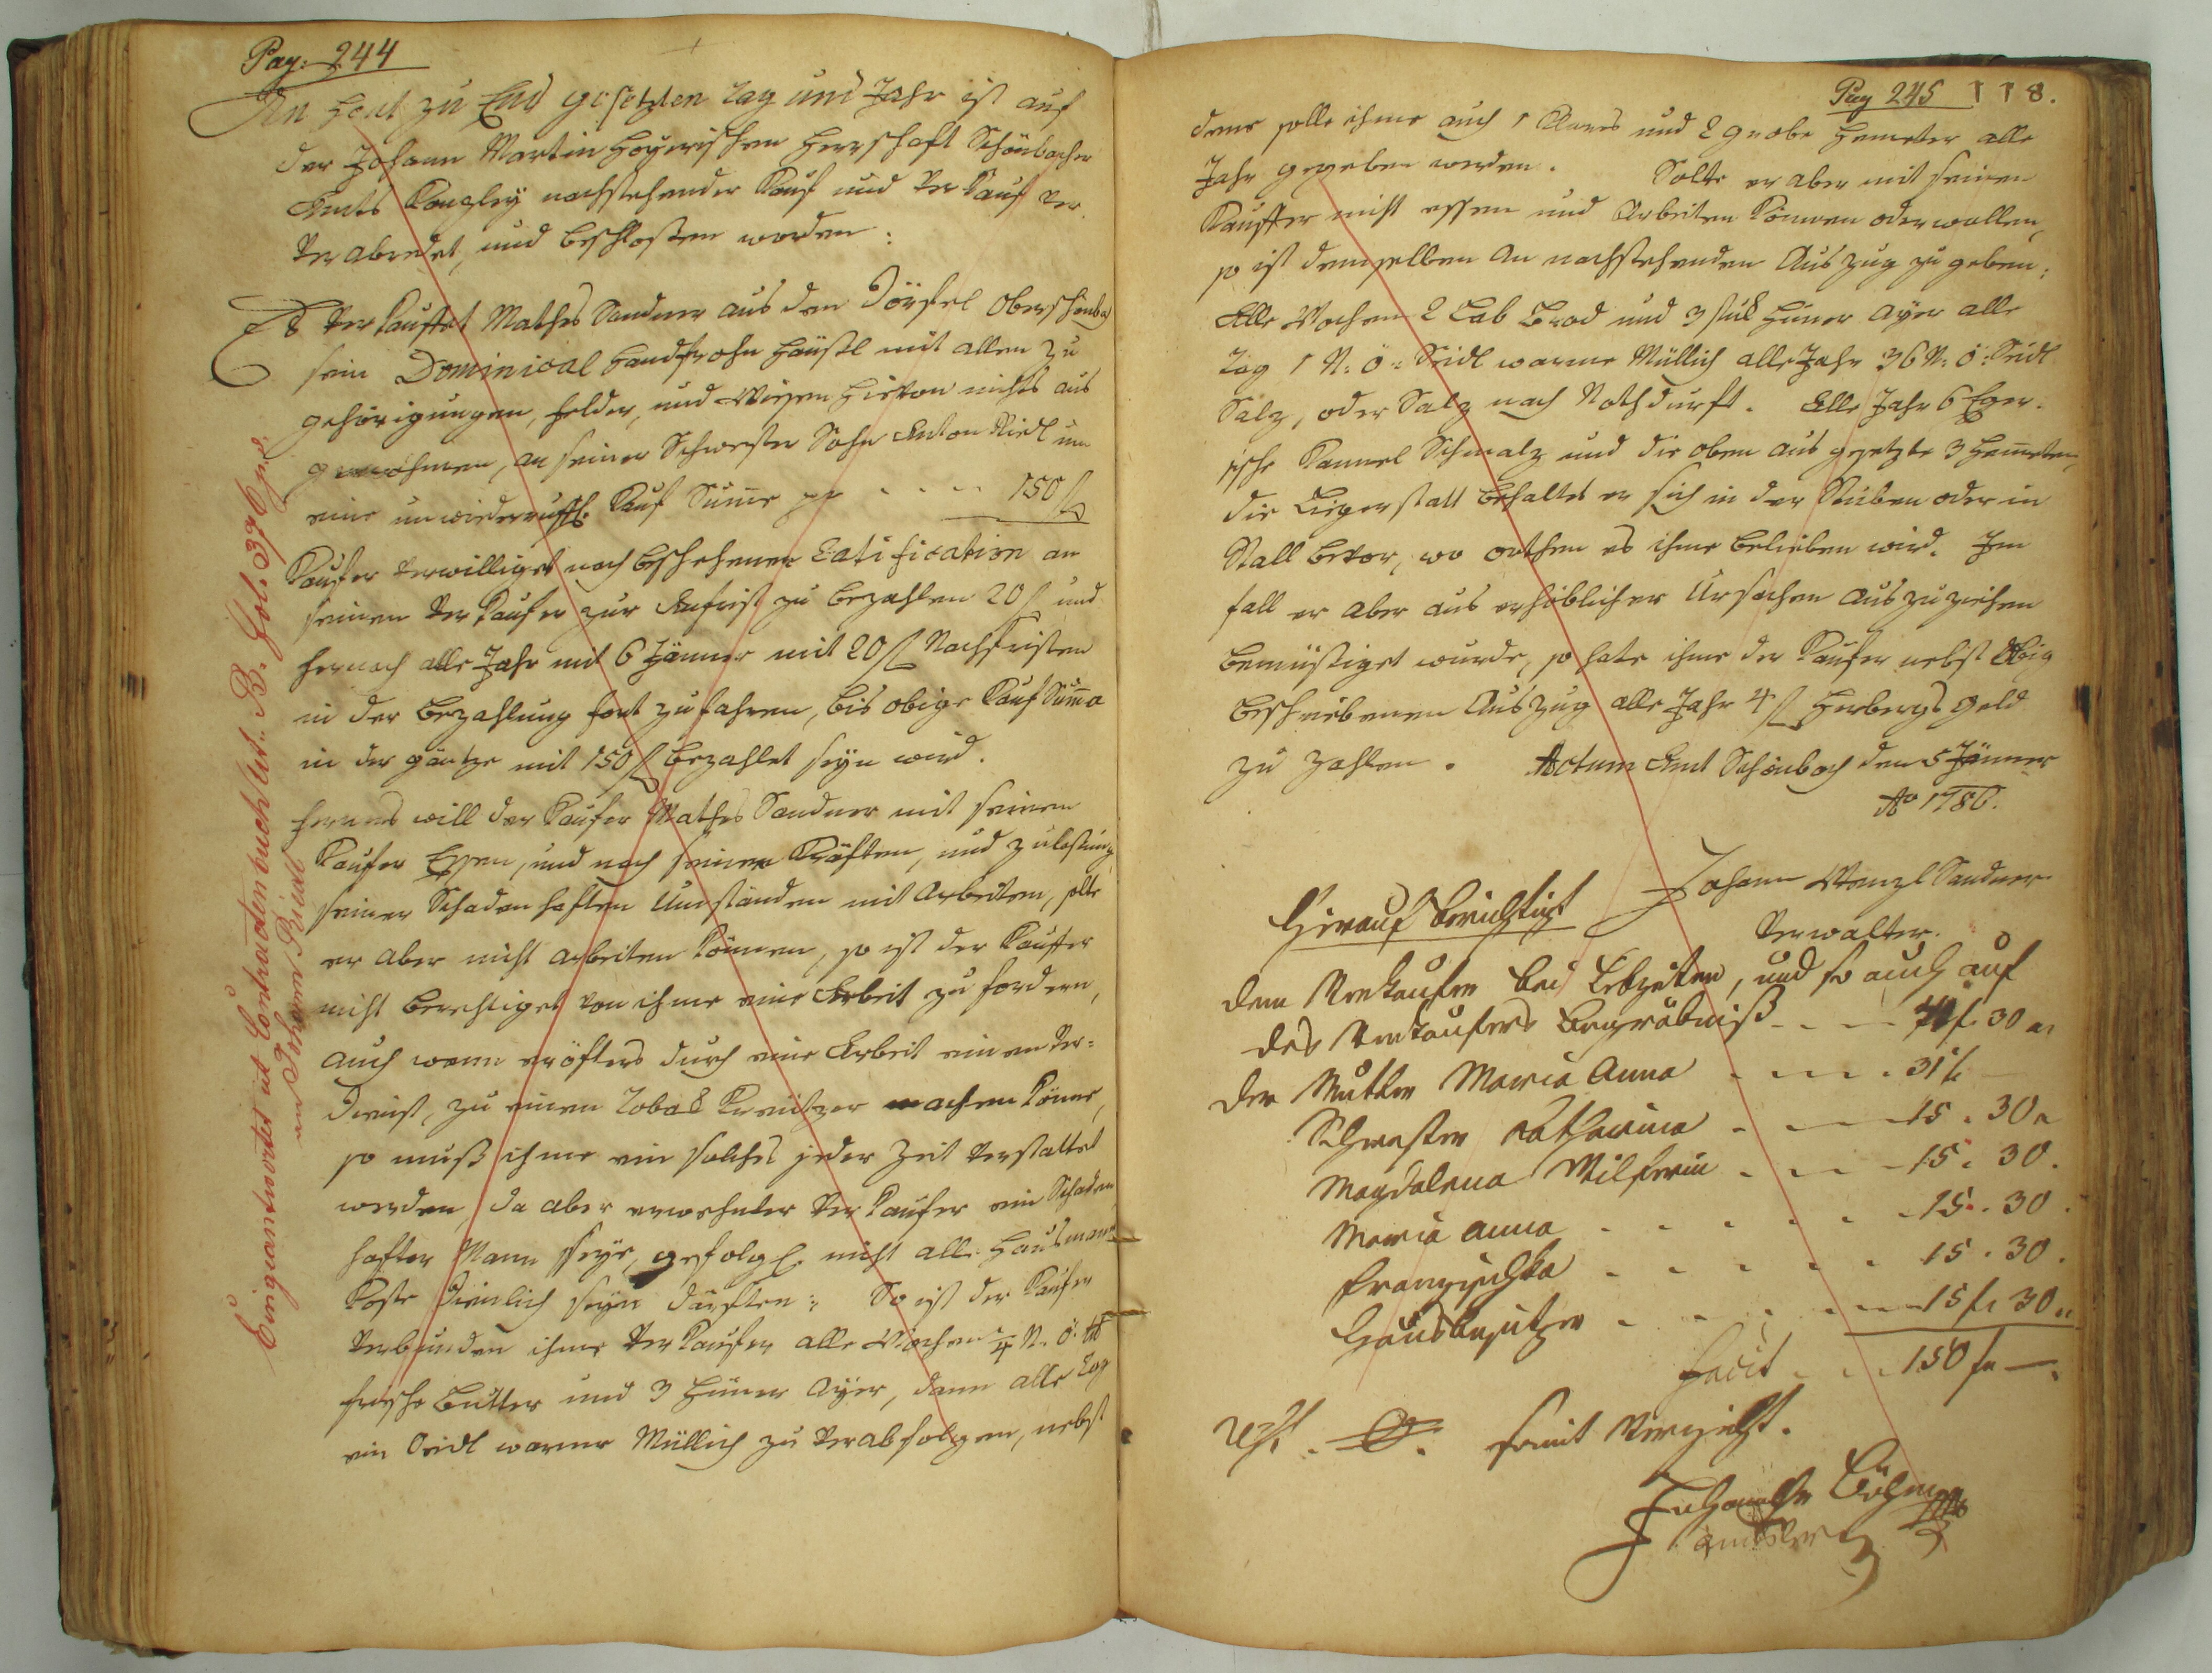 Pag: 244
An heut zu End gesetzten tag und Jahr ist auf
der Johann Martin Hoyerischen Herrschaft Schönbacher
Amts Kanzley nachstehender Kauf und Verkauf ver-
verabredet, und beschloßen worden:
Es verkauffet Mathes Sandner aus den Dörfel Oberschönbach
sein Dominical handfrohn häußl mit allen zu
gehörigungen, felder, und Wiesen hievon nichts aus
genohmen, an seiner Schwester Sohn Anton Riedl um
eine unwiederruffl. Kauf Summe pr - - - - 150 f
Kaufer verwilliget nach beschehener Ratification an
seinen Verkaufer zur Anfrist zu bezahlen 20 f und
hernach alle Jahr mit 6 Jänner mit 20 f Nachfristen
in der bezahlung fort zufahren, bis obige Kauf Summa
in der gäntze mit 150 f bezahlet seyn wird.
ferners will der Kaufer Mathes Sandner mit seinem
Kaufer Essen, und nach seinen Kräften, und zulaßung
seiner Schadenhaften Umständen mit arbeiten, solte
er aber nicht arbeiten können, so ist der Kauffer
nicht berechtiget von ihme eine Arbeit zu fordern,
auch wenn er öfters durch eine Arbeit einen Ver-
dienst, zu einen Toback Kreützer machen köner,
so muß ihme ein solches jeder Zeit verstattet
werden, da aber erwehnter Verkaufer ein Schaden
hafter Mann seye, gefolgl. nicht alle Hausmans
Koste dienlich seyn därften: So ist der Kaufer
verbunden ihme Verkaufer alle Wochen 1/4 N. ö. tt
frische Butter und 3 Hüner ayer, dann alle tag
ein Seidl warme Müllich zu verabfolgen, nebst
Eingeantwortet ut Contractenbuch Litt. B. Fol. 376
an Johann Riedl
Pag 245 118.
deme solle ihme auch 1 und 2 grobe Hemeter alle
Jahr gegeben werden. Solte er aber mit seinen
Kauffer nicht essen und Arbeiten können oder wollen,
so ist demselben an nachstehenden Auszug zu geben:
Alle Wochen 2 Lab Brod und 3 stuk Hüner ayer alle
tag 1 N: Ö: Seidl warme Müllich alle Jahr 36 N: ö: Seidl
Salz, oder Salz nach Nothdurft. Alle Jahr 6 Eger-
ische Kannel Schmalz und die oben ausgesetzte 3 Hemeter,
die Liegerstatt behaltet er sich in der Stuben oder in
Stall bevor, wo orthen es ihme belieben wird. Im
fall er aber aus erhöblicher Ursachen auszuziehen
bemüßiget wurde, so hate ihme der Kaufer nebst obig
beschriebenen Auszug alle Jahr 4 f Herbergs geld
zu zahlen. Actum Amt Schönbach den 5 Jänner
Ao 1786.
Johann Wenzl Sandner
Verwalter.
Hierauf berichtigt
dem Verkaufer bei Lebzeiten, und so auch auf
des Verkaufers Begräbniß - - - f. 30 x
der Mutter Maria Anna - - - - 31 f. —
Schwester Katharina - - - 15 . 30 x
Magdalena Milferin - - - 15 . 30 .
Maria Anna - - - - - - 15 . 30 .
Franzischka - - - - - 15 . 30 .
Hausbesitzer - - - - - 15 f. 30 x
facit - - 150 f. —
Rest . 0 . somit Verzicht.
Böhm